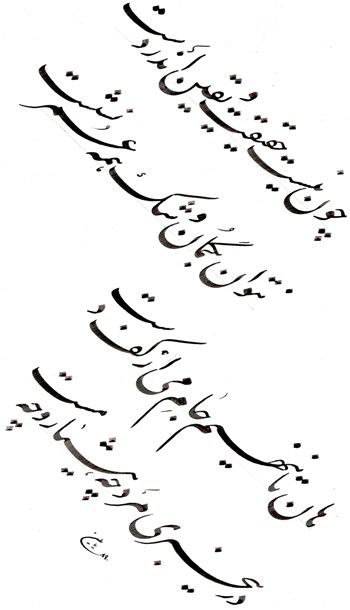 چون نیست حقیقت و یقین اندر دست
نتوان بگمان و شک همه عمر نشست
هان تا ننهیم جام می از کف دست
در بیخبری مرد چه هشیار و چه مست